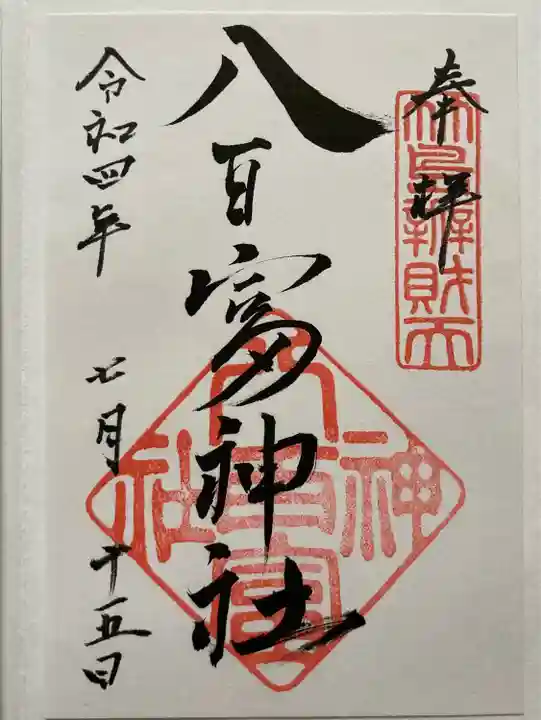 奉拝
八百富神社
八百富神社
令和四年 七月 十五日